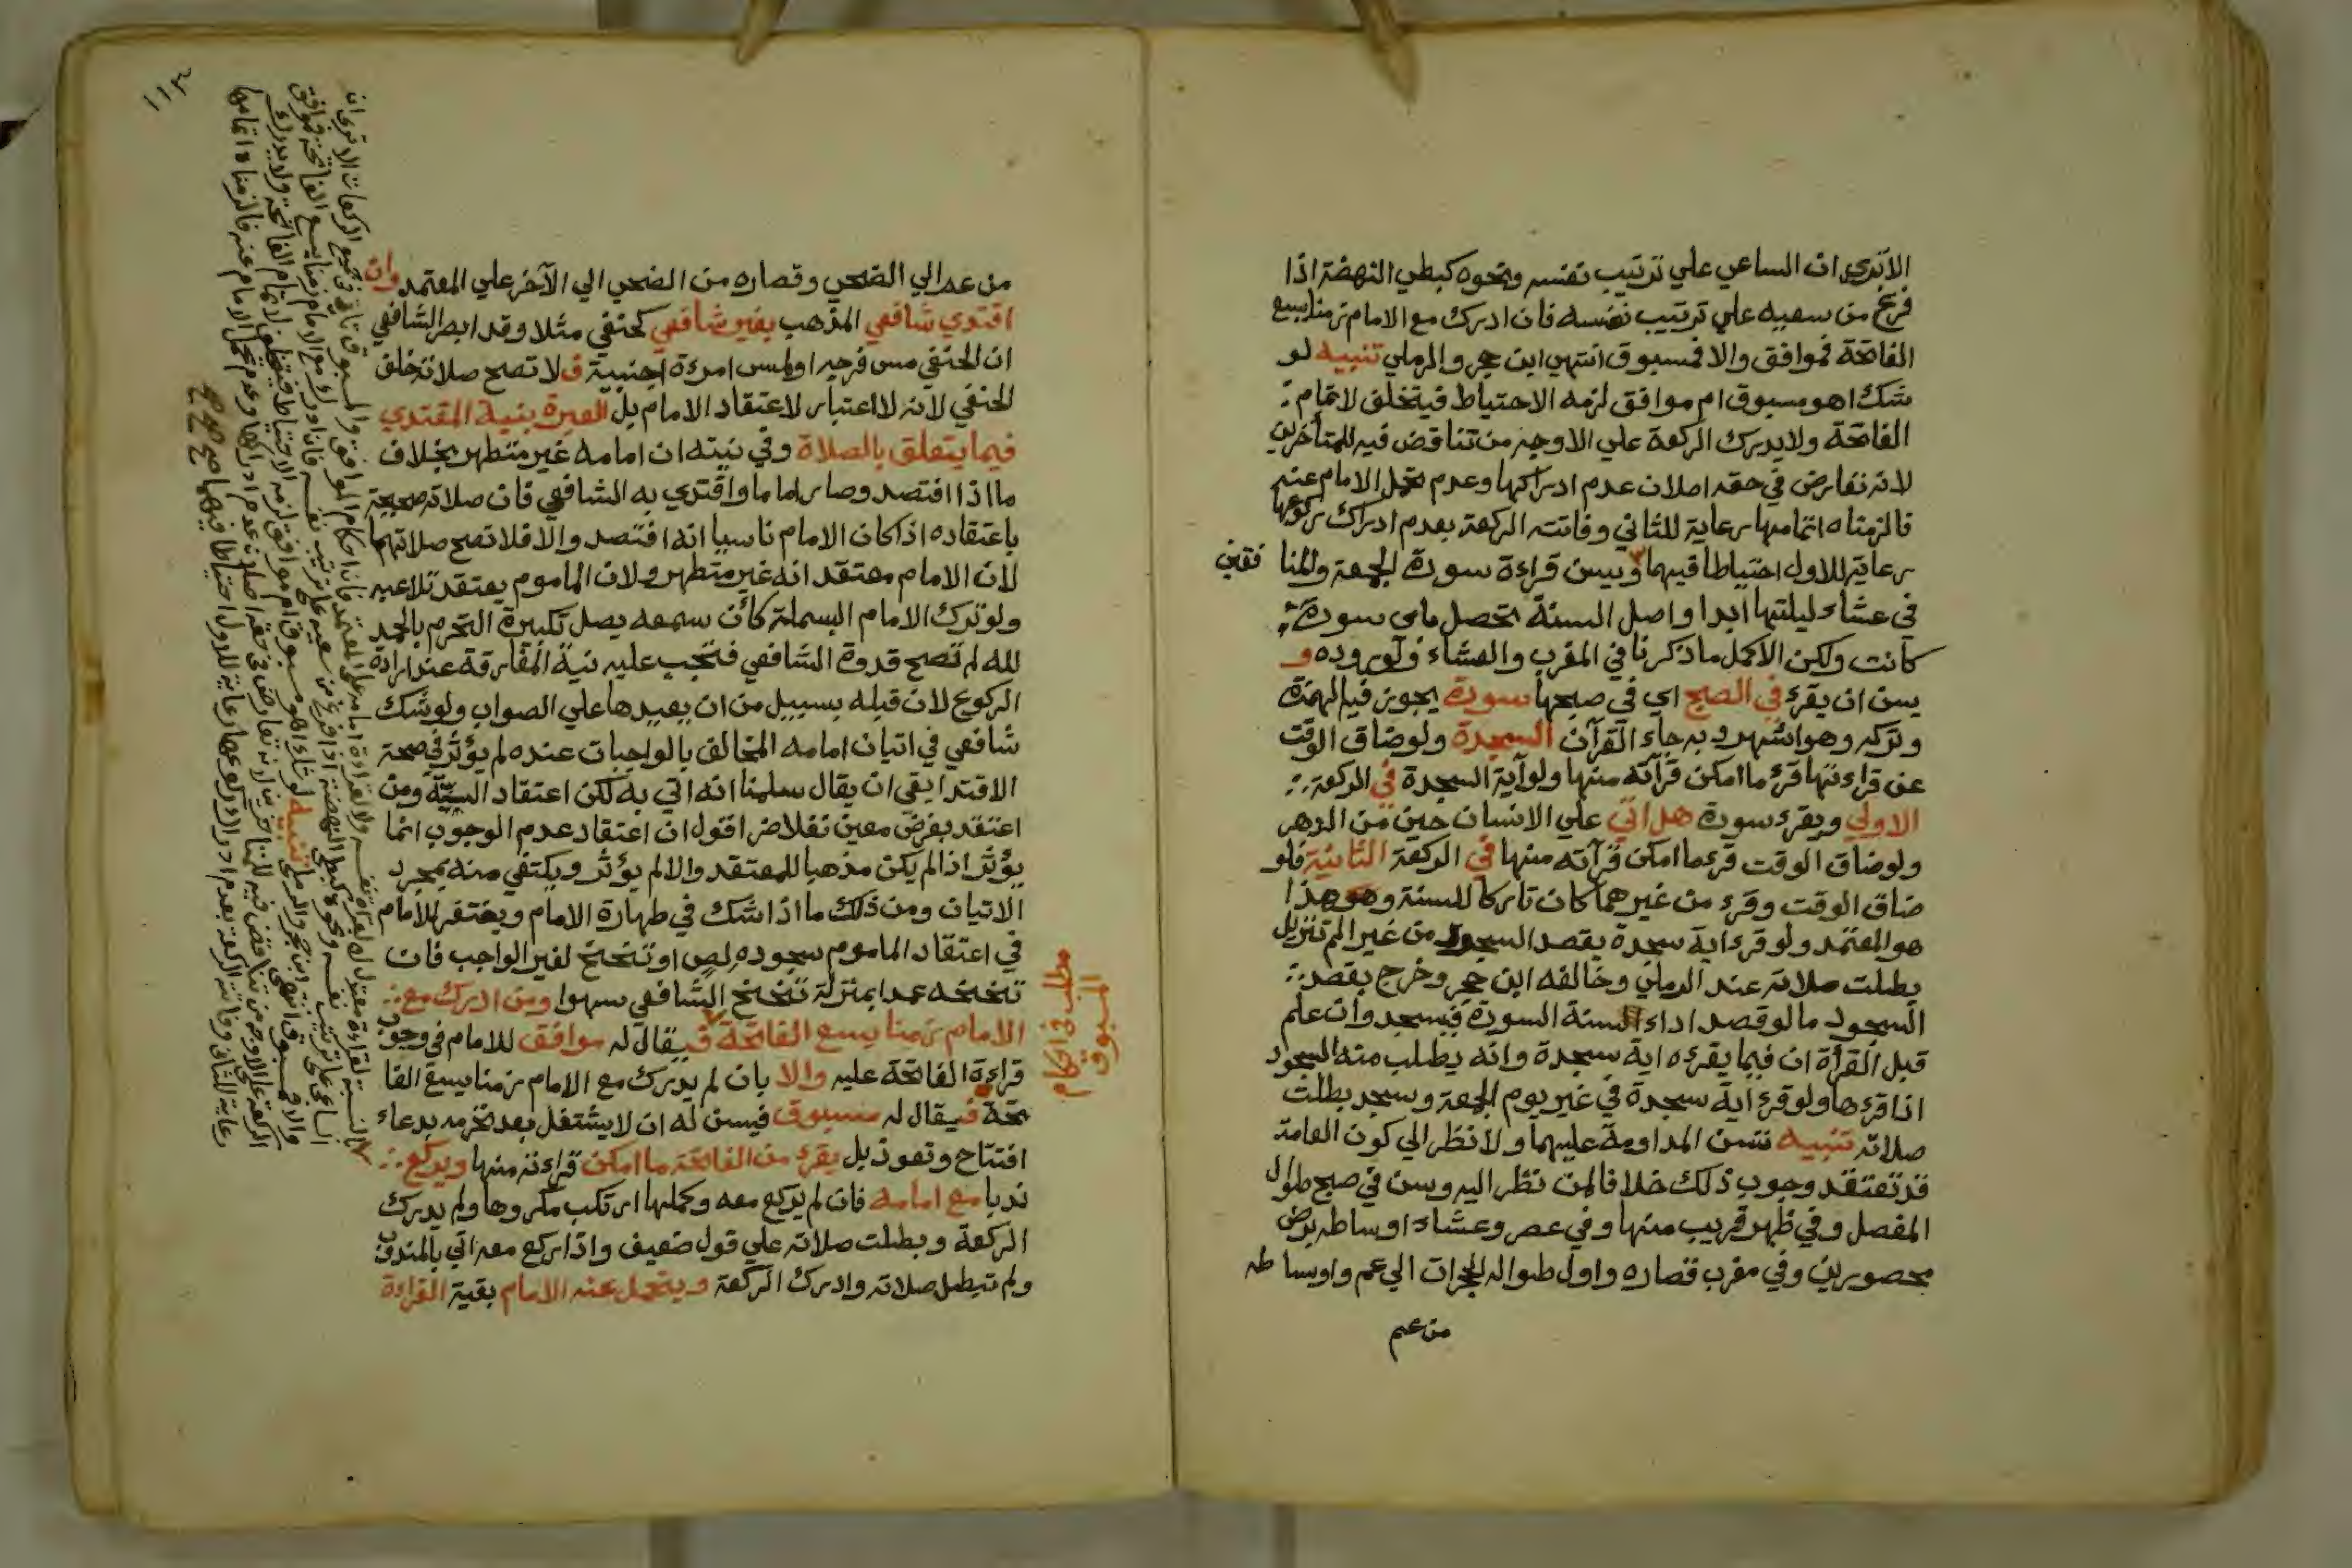 الا تري ان الساعي علي ترتيب نفسه ونحوه كبطي النهضة اذا
فرغ من سعيه علي ترتيب نفسه فان ادرك مع الامام زمنا يسع
الفاتحة فموافق والا فمسبوق انتهي ابن حجر والرملي تنبيه لو
شك اهو مسبوق ام موافق لزمه الاحتياط فيتخلف لاتمام
الفاتحة ولا يدرك الركعة علي الاوجه من تناقض فيه للمتأخرين
لانه تعارض في حقه اصلان عدم ادراكها وعدم تحمل الامام عنه
فالزمناه اتمامها رعاية للثاني وفاتته الركعة بعدم ادراك ركوعها
رعاية للاول احتياطا فيهما ويسن قراءة سورة الجمعة والمنا فقين
في عشاء ليلتها ابدا واصل السنة تحصل باي سورة
كانت ولكن الاكمل ما ذكرنا في المغرب والعشاء لوروده و
يسن ان يقرء في الصبح اي في صبحها سورة يجوز فيه الهمزة
وتركه وهو اشهر وبه جاء القرآن السجدة ولو ضاق الوقت
عن قراءتها قرء ما امكن قرآته منها ولو آية السجدة في الركعة
الاولي ويقرء سورة هل اتي علي الانسان حين من الدهر
ولو ضاق الوقت قرء ما امكن قرآته منها في الركعة الثانية فلو
ضاق الوقت وقرء من غيرهما كان تاركا للسنة وهذا
هو المعتمد ولو قرء اية سجدة بقصد السجود من غير الم تنزيل
بطلت صلاته عند الرملي وخالفه ابن حجر وخرج بقصد
السجود ما لو قصد اداء السنة السورة فيسجد وان علم
قبل القرأة ان فيما يقرءه اية سجدة وانه يطلب منه السجود
اذا قرءها ولو قرء اية سجدة في غير يوم الجمعة وسجد بطلت
صلاته تنبيه تسن المداومة عليهما ولا نظر الي كون العامة
قد تعتقد وجوب ذلك خلافا لمن نظر اليه وسن في صبح طوال
المفصل وفي ظهر قريب منها وفي عصر وعشاء اوساطه برضي
محصورين وفي مغرب قصاره واول طواله الحجرات الي عم واوساطه
من عم
١١٣
من عم الي الضحي وقصاره من الضحي الي الآخر علي المعتمد وان
اقتدي شافعي المذهب بغير شافعي كحنفي مثلا وقد ابصر الشافعي
ان الحنفي مس فرجه او لمس امرءة اجنبية ف لا تصح صلاته خلف
الحنفي لانه لا اعتبار لاعتقاد الامام بل العبرة بنية المقتدي
فيما يتعلق بالصلاة وفي نيته ان امامه غير متطهر بخلاف
ما اذا افتصد وصار اماما واقتدي به الشافعي فان صلاته صحيحة
باعتقاده اذا كان الامام ناسيا انه افتصد والا فلا تصح صلاتهما
لان الامام معتقد انه غير متطهر ولان الماموم يعتقد تلاعبه
ولو ترك الامام البسملة كأن سمعه يصل تكبيرة التحرم بالحمد
لله لم تصح قدوة الشافعي فتجب عليه نية المفارقة عند ارادة
الركوع لان قبله بسبيل من ان يعيدها علي الصواب ولو شك
شافعي في اتيان امامه المخالف بالواجبات عنده لم يؤثر في صحة
الاقتدا بقي ان يقال سلمنا انه اتي به لكن اعتقاد السنية ومن
اعتقد بفرض معين نفلا ضر اقول ان اعتقاد عدم الوجوب انما
يؤثر اذا لم يكن مذهبا للمعتقد والا لم يؤثر ويكتفي منه بمجرد
الاتيان ومن ذلك ما اذا شك في طهارة الامام ويغتفر للامام
في اعتقاد الماموم سجوده لص او تنحنح لغير الواجب فان
تنحنحه عمدا بمنزلة تنحنح الشافعي سهوا ومن ادرك مع
الامام زمنا يسع الفاتحة فيقال له موافق للامام في وجوب
قراءة الفاتحة عليه والا بان لم يدرك مع الامام زمنا يسع الفا
تحة فيقال له مسبوق فيسن له ان لا يشتغل بعد تحرمه بدعاء
افتتاح وتعوذ بل يقرء من الفاتحة ما امكن قراءته منها ويركع
ندبا مع امامه فان لم يركع معه وكملها ارتكب مكروها ولم يدرك
الركعة وبطلت صلاته علي قول ضعيف واذا ركع معه اتي بالمندوب
ولم تبطل صلاته وادرك الركعة ويتحمل عنه الامام بقية القراءة
مطلب في احكام
المسبوق
الا تري ان
الساعي علي ترتيب نفسه ونحوه كبطي النهضة اذا فرغ من سعيه علي ترتيب نفسه فان ادرك مع الامام زمنا يسع الفاتحة فموافق
والا فمسبوق انتهي ابن حجر والرملي تنبيه لو شك اهو مسبوق ام موافق لزمه الاحتياط فيتخلف لاتمام الفاتحة ولا يدرك
الركعة علي الاوجه من تناقض فيه للمتأخرين لانه تعارض في حقه اصلان عدم ادراكها وعدم تحمل الامام عنه فالزمناه اتمامها
رعاية للثاني وفاتته الركعة بعدم ادراك ركوعها رعاية للاول احتياطا فيهما صح